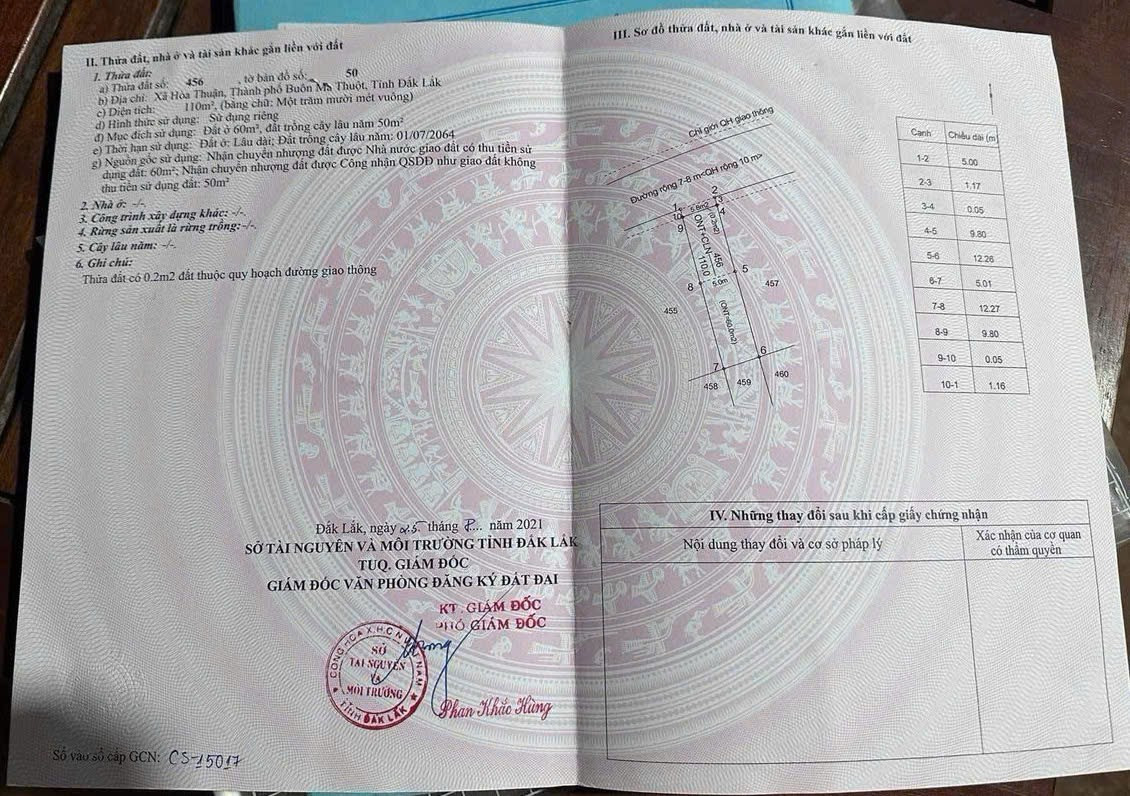 II. Thửa đất, nhà ở và tài sản khác gắn liền với đất
1. Thửa đất:
a) Thửa đất số: 456 , tờ bản đồ số: 50
b) Địa chỉ: Xã Hòa Thuận, Thành phố Buôn Ma Thuột, Tỉnh Đắk Lắk
c) Diện tích: 110m², (bằng chữ: Một trăm mười mét vuông)
d) Hình thức sử dụng: Sử dụng riêng
đ) Mục đích sử dụng: Đất ở 60m², đất trồng cây lâu năm 50m²
e) Thời hạn sử dụng: Đất ở: Lâu dài; Đất trồng cây lâu năm: 01/07/2064
g) Nguồn gốc sử dụng: Nhận chuyển nhượng đất được Nhà nước giao đất có thu tiền sử
dụng đất: 60m²; Nhận chuyển nhượng đất được Công nhận QSDĐ như giao đất không
thu tiền sử dụng đất: 50m²
2. Nhà ở: -/-.
3. Công trình xây dựng khác: -/-.
4. Rừng sản xuất là rừng trồng:-/-.
5. Cây lâu năm: -/-.
6. Ghi chú:
Thửa đất có 0.2m2 đất thuộc quy hoạch đường giao thông
Đắk Lắk, ngày 25 tháng 8... năm 2021
SỞ TÀI NGUYÊN VÀ MÔI TRƯỜNG TỈNH ĐẮK LẮK
TUQ. GIÁM ĐỐC
GIÁM ĐỐC VĂN PHÒNG ĐĂNG KÝ ĐẤT ĐAI
KT. GIÁM ĐỐC
PHÓ GIÁM ĐỐC
CỘNG HÒA X.H.C.N VIỆT NAM
SỞ
TÀI NGUYÊN
VÀ
MÔI TRƯỜNG
TỈNH ĐẮK LẮK
Phan Khắc Hùng
Số vào sổ cấp GCN: CS-15017
III. Sơ đồ thửa đất, nhà ở và tài sản khác gắn liền với đất
Chỉ giới QH giao thông
Đường rộng 7-8 m<QH rộng 10 m>
1 2
3
10 4
9
5.6m2
(0.2m2)
ONT+CLN 456
110.0
5
8 5.0m
457
455
(ONT=60.0m2)
6
7
458 459 460
Cạnh Chiều dài (m)
1-2 5.00
2-3 1.17
3-4 0.05
4-5 9.80
5-6 12.26
6-7 5.01
7-8 12.27
8-9 9.80
9-10 0.05
10-1 1.16
IV. Những thay đổi sau khi cấp giấy chứng nhận
Nội dung thay đổi và cơ sở pháp lý
Xác nhận của cơ quan
có thẩm quyền